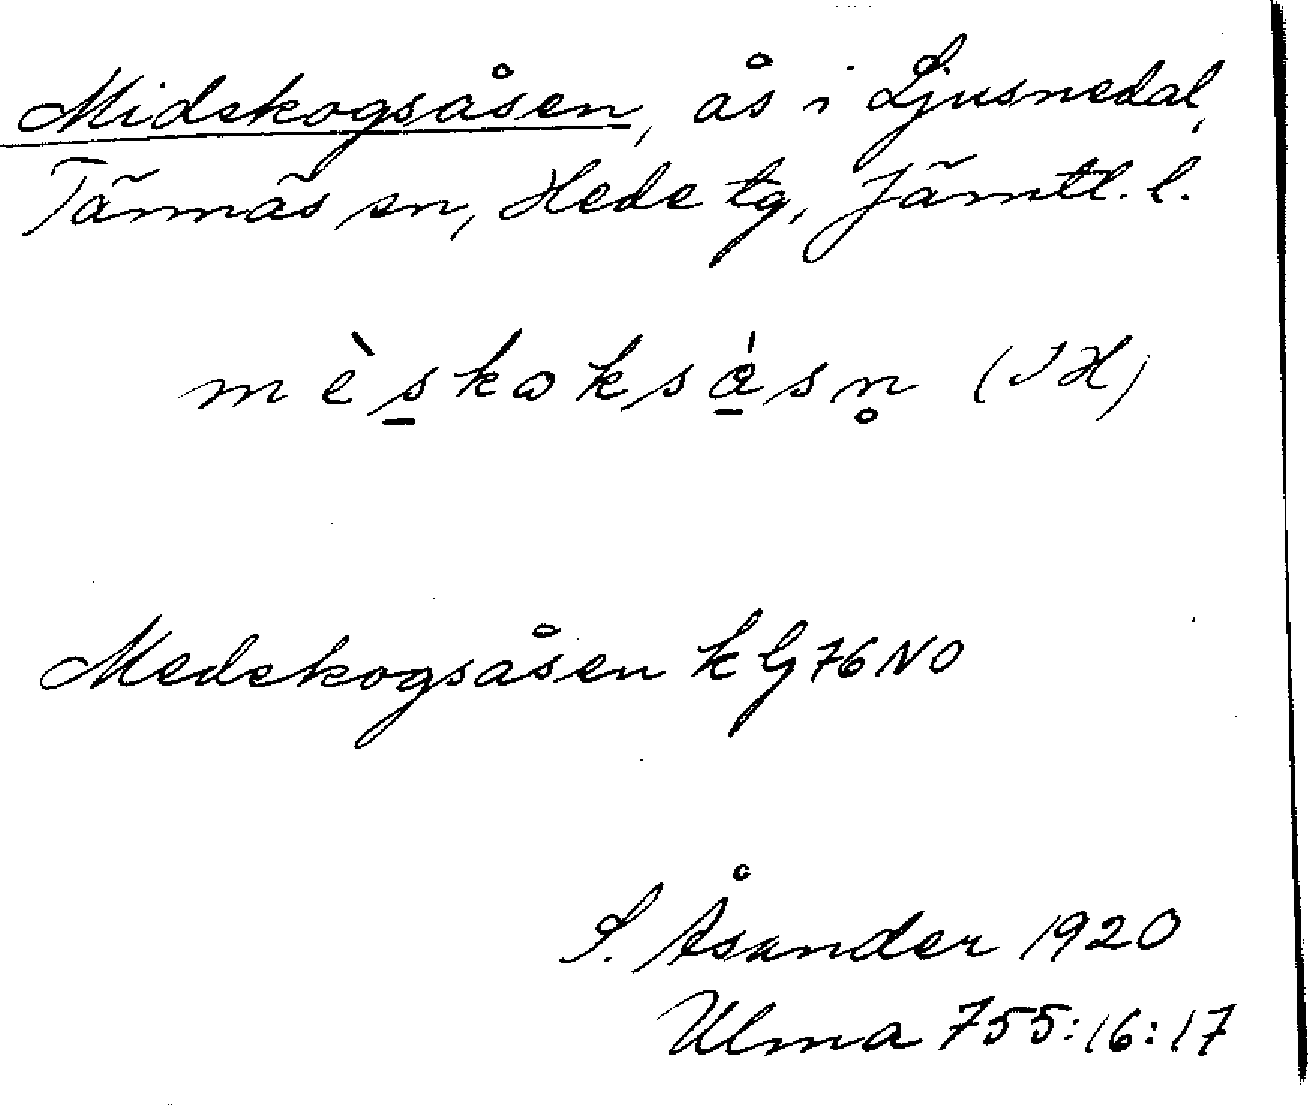 Midskogsåsen, ås i Ljusnedal,
Tännäs sn, Hede tg, Jämtl. l.
mèskoksåsn̥ (JH)
Medskogsåsen k G 76 NO
S. Åsander 1920
Ulma 755:16:17